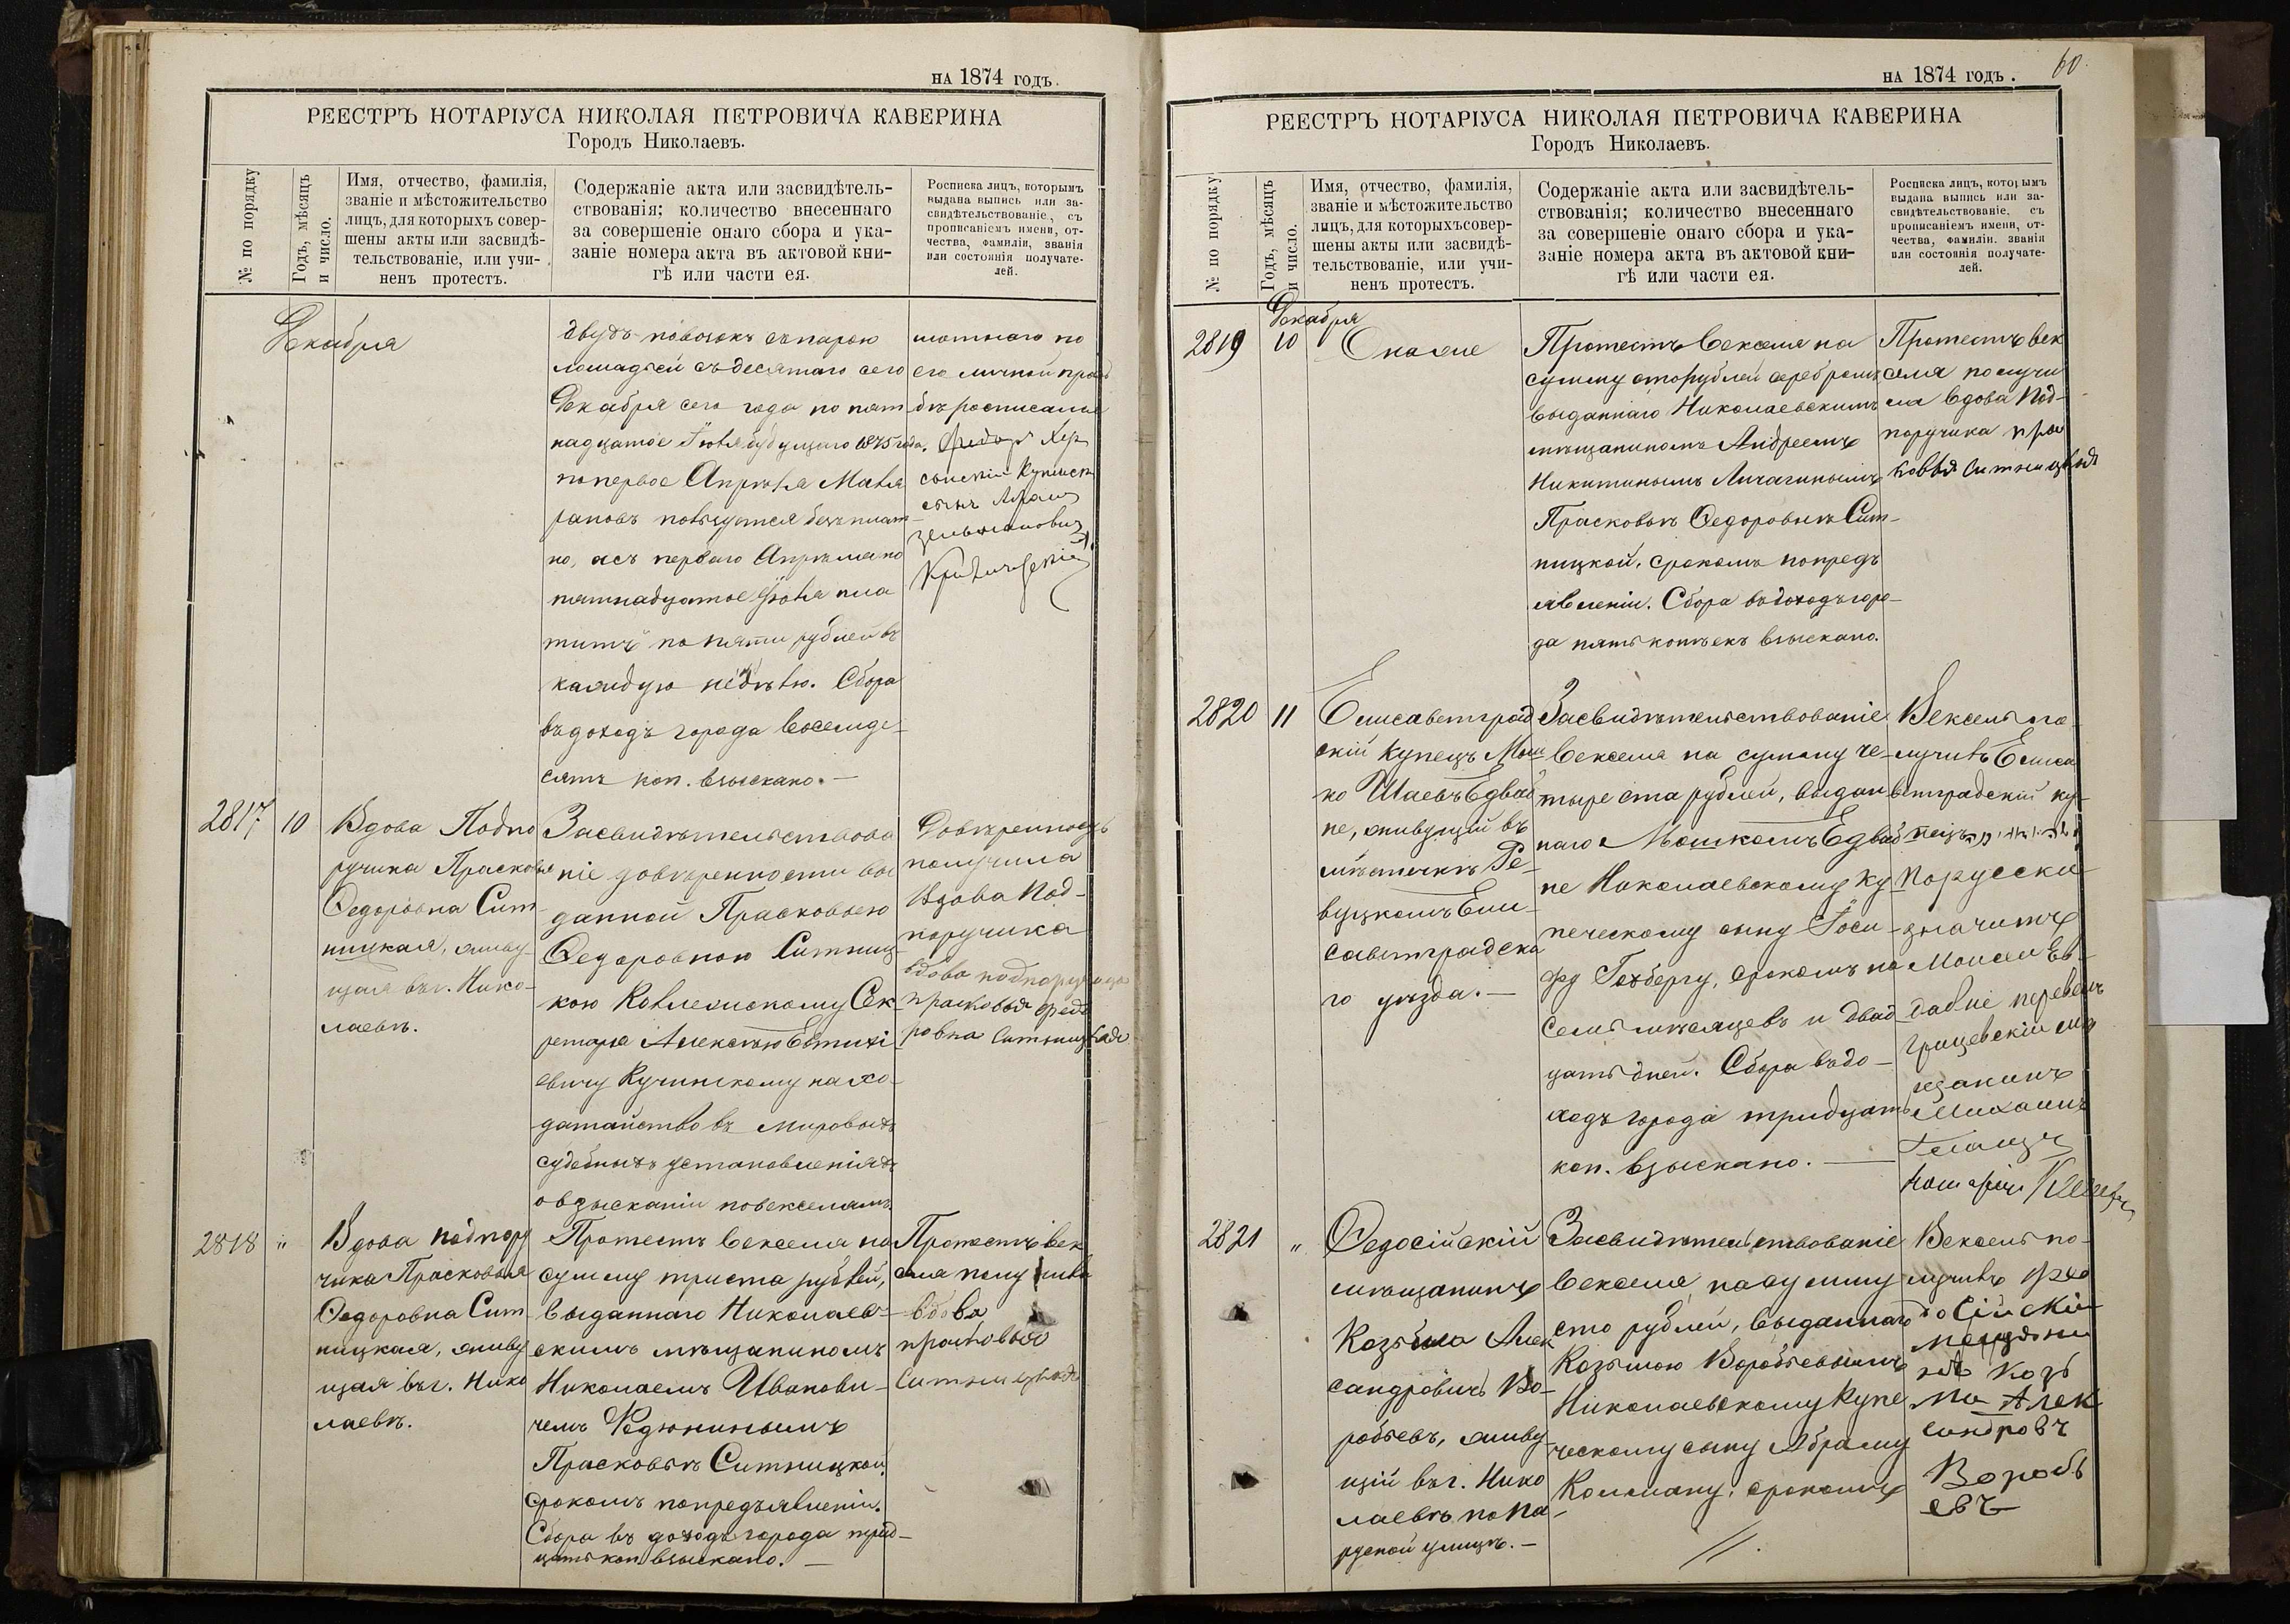 НА 1874 ГОДЪ.
РЕЕСТРЪ НОТАРІУСА НИКОЛАЯ ПЕТРОВИЧА КАВЕРИНА
Городъ Николаевъ.
№ по порядку
Годъ, мѣсяцъ
и число.
Имя, отчество, фамилія,
званіе и мѣстожительство
лицъ, для которыхъ совер-
шены акты или засвидѣ-
тельствованіе, или учи-
ненъ протестъ.
Содержаніе акта или засвидѣтель-
ствованія; количество внесеннаго
за совершеніе онаго сбора и ука-
заніе номера акта въ актовой кни-
гѣ или части ея.
Росписка лицъ, которымъ
выдана выпись или за-
свидѣтельствованіе, съ
прописаніемъ имени, от-
чества, фамиліи, званія
или состоянія получате-
лей.
Декабря
двухъ повозокъ съ парою
лошадей съ десятаго сего
Декабря сего года по пят-
надцатое Іюля будущаго 1875 года,
по первое Апрѣля
но, а съ перваго Апрѣля по
пятнадцатое Іюля пла
титъ по пяти рублей въ
каждую недѣлю. Сбора
въ доходъ города восемде-
сятъ коп. взыскано.—
его личной
росписался
сонскій Купеческ
сынъ
2817
10
Вдова Подпо
ручика Прасковья
Ѳедоровна Сит-
ницкая, живу-
щая въ г. Нико-
лаевѣ.
Засвидѣтельствова
ніе довѣренности вы
данной Прасковьею
Ѳедоровною Ситниц-
кою Коллежскому Сек
ретарю Алексѣю Евтихі
евичу Кучинскому на хо-
датайство въ Мировыхъ
судебныхъ установленіяхъ
о взысканіи по векселямъ.
Довѣренность
получила
Вдова Под-
поручика
вдова подпоручица
прасковья федо
ровна Ситницкая
2818
"
Вдова подпору
чика Прасковья
Ѳедоровна Сит-
ницкая, живу
щая въ г. Нико
лаевѣ.
Протестъ векселя на
сумму триста рублей,
выданнаго Николаев-
скимъ мѣщаниномъ
Николаемъ Иванови-
чемъ
Прасковьѣ Ситницкой,
срокомъ по предъявленіи.
Сбора въ доходъ города трид-
цать коп. взыскано.—
Протестъ век
селя получила
вдова
прасковья
Ситницкая
60.
НА 1874 ГОДЪ.
РЕЕСТРЪ НОТАРІУСА НИКОЛАЯ ПЕТРОВИЧА КАВЕРИНА
Городъ Николаевъ.
№ по порядку
Годъ, мѣсяцъ
и число.
Имя, отчество, фамилія,
званіе и мѣстожительство
лицъ, для которыхъ совер-
шены акты или засвидѣ-
тельствованіе, или учи-
ненъ протестъ.
Содержаніе акта или засвидѣтель-
ствованія; количество внесеннаго
за совершеніе онаго сбора и ука-
заніе номера акта въ актовой кни-
гѣ или части ея.
Росписка лицъ, которымъ
выдана выпись или за-
свидѣтельствованіе, съ
прописаніемъ имени, от-
чества, фамиліи, званія
или состоянія получате-
лей.
Декабря
2819
10
Онаяже
Протестъ векселя на
сумму сто рублей серебромъ
выданнаго Николаевскимъ
мѣщаниномъ Андреемъ
Никитинымъ
Прасковьѣ Ѳедоровнѣ Сит-
ницкой, срокомъ по предъ
явленіи. Сбора въ доходъ горо-
да пять копѣекъ взыскано.
Протестъ век
селя получи
ла вдова Под-
поручика пра
ковья Ситницкая
2820
11
Елисаветград
скій купецъ Мош
ко Шаевъ Едвай
не, живущій въ
мѣстечкѣ Ре-
вуцкомъ Ели-
саветградска
го уѣзда.—
Засвидѣтельствованіе
векселя на сумму че-
тыре ста рублей, выдан
наго Мошкомъ Едвай
не Николаевскому ку
печескому сыну Іоси-
фу Гохбергу, срокомъ на
семь мѣсяцевъ и двад-
цать дней. Сбора въ до-
ходъ города тридцать
коп. взыскано.—
Вексель по-
лучилъ Елиса
ветградскій ку-
пецъ
по русски
значитъ
перевелъ
щанинъ
Михаилъ
2821
"
Ѳедосійскій
мѣщанинъ
Козьма Алек
сандровичъ Во-
робьевъ, живу
щій въ г. Нико
лаевѣ по На-
русной улицѣ.—
Засвидѣтельствованіе
векселя на сумму
сто рублей, выданнаго
Козьмою Воробьевымъ
Николаевскому Купе
ческому сыну Абраму
Колману, срокомъ
Вексель по-
лучилъ Фео
досійскій
мещани
нъ Козь
ма Алек
сандровъ
Воробь
евъ